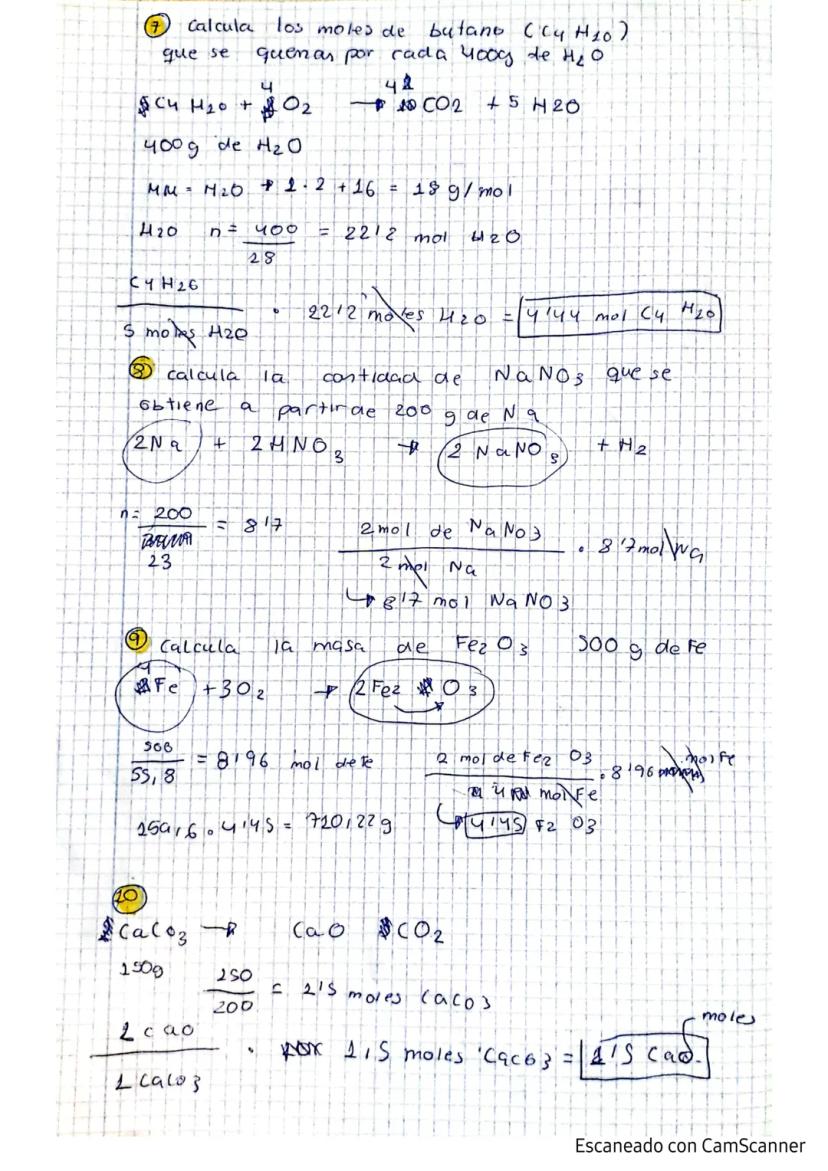 7 Calcula los moles de butano (C4 H10)
que se queman por cada 400g de H2O
C4 H10 + O2 → CO2 + 5 H2O
4 4
400g de H2O
MM = H2O → 1·2 + 16 = 18 g/mol
H2O n = 400 / 18 = 22'2 mol H2O
C4H10 / 5 moles H2O · 22'2 moles H2O = 4'44 mol C4 H10
8 calcula la cantidad de NaNO3 que se
obtiene a partir de 200 g de Na
2Na + 2HNO3 → 2 NaNO3 + H2
n = 200 / 23 = 8'7
2 mol de NaNO3 / 2 mol Na · 8'7 mol Na
↳ 8'7 mol NaNO3
9 Calcula la masa de Fe2O3 500 g de Fe
4 Fe + 3O2 → 2 Fe2 O3
500 / 55,8 = 8'96 mol de Fe
2 mol de Fe2 O3 / 4 mol Fe · 8'96 mol Fe
159,6 · 4'45 = 710,22 g
↳ 4'45 F2 O3
10
CaCO3 → CaO CO2
150g 150 / 100 = 1'5 moles CaCO3
1 CaO / 1 CaCO3 · 1,5 moles CaCO3 = 1'5 CaO
moles
Escaneado con CamScanner